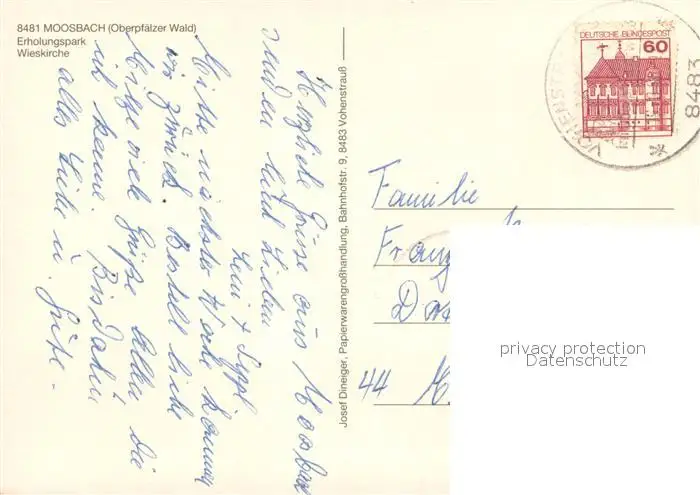 8481 MOOSBACH (Oberpfälzer Wald)
Erholungspark
Wieskirche
Herzliche Grüße aus Moosbach
senden
Leni + Sepp
Mitte nächster Woche kommen
wir zurück. Bestell liebe
viele Grüße alle die
ich kenne. Bis dahin
alles Liebe u. Gute.
Josef Dineiger, Papierwarengroßhandlung, Bahnhofstr. 9, 8483 Vohenstrauß
DEUTSCHE BUNDESPOST
60
VOHENST
8483
Familie
Franz
44
privacy protection
Datenschutz